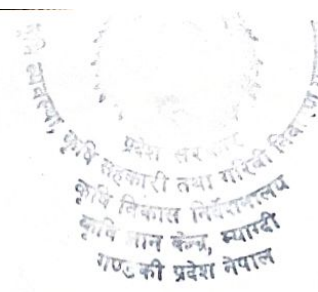 प्रदेश सरकार
भूमि व्यवस्था, कृषि सहकारी तथा गरिबी निवा
कृषि विकास निर्देशनालय
कृषि ज्ञान केन्द्र, म्याग्दी
गण्डकी प्रदेश नेपाल